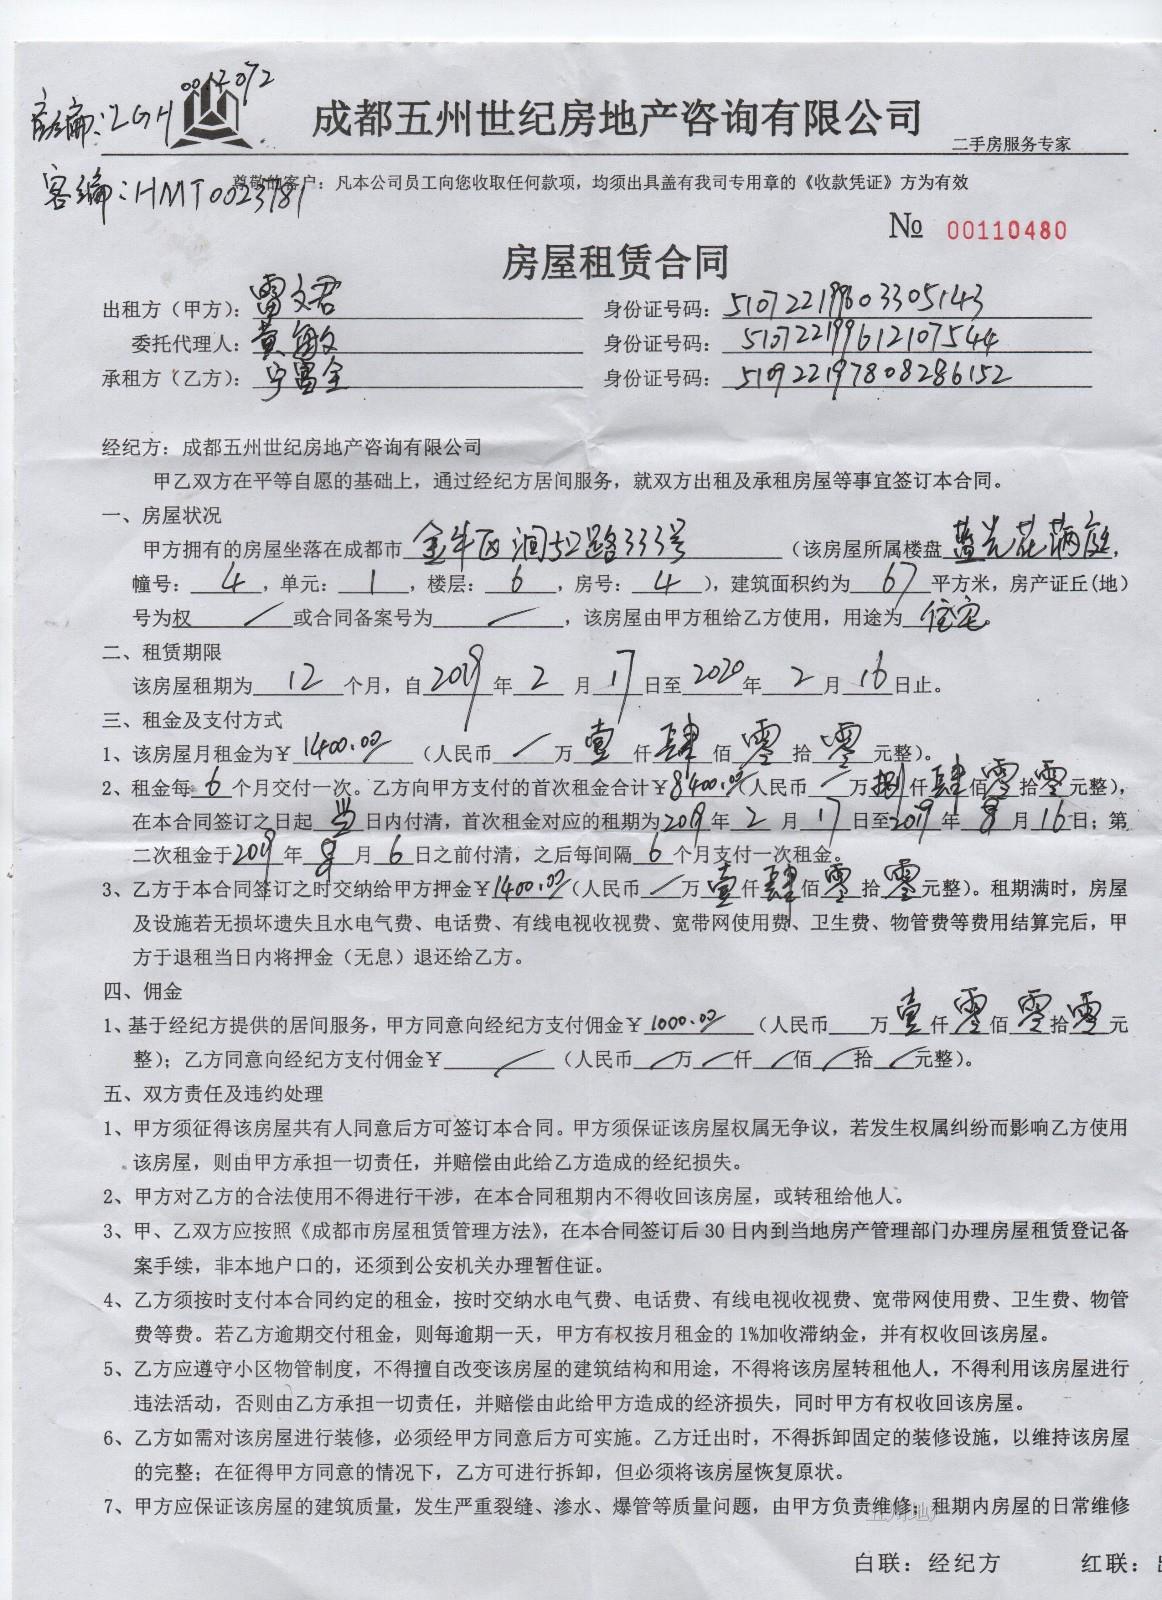 房编：LGH0012072
成都五州世纪房地产咨询有限公司
二手房服务专家
客编：HMT0023781
尊敬的客户：凡本公司员工向您收取任何款项，均须出具盖有我司专用章的《收款凭证》方为有效
№ 00110480
房屋租赁合同
出租方（甲方）：雷文君 身份证号码：
委托代理人：黄敏 身份证号码：510722199612107544
承租方（乙方）：宁富全 身份证号码：510922197808286152
经纪方：成都五州世纪房地产咨询有限公司
甲乙双方在平等自愿的基础上，通过经纪方居间服务，就双方出租及承租房屋等事宜签订本合同。
一、房屋状况
甲方拥有的房屋坐落在成都市 金牛区 路333号 （该房屋所属楼盘 蓝光花满庭，
幢号： 4 ，单元： 1 ，楼层： 6 ，房号： 4 ），建筑面积约为 67 平方米，房产证丘(地)
号为权 / 或合同备案号为 / ，该房屋由甲方租给乙方使用，用途为 住宅。
二、租赁期限
该房屋租期为 12 个月，自 2019 年 2 月 17 日至 2020 年 2 月 16 日止。
三、租金及支付方式
1、该房屋月租金为￥ 1400.00 （人民币 / 万 壹 仟 肆 佰 零 拾 零 元整）。
2、租金每 6 个月交付一次。乙方向甲方支付的首次租金合计￥8400.00（人民币 / 万捌仟肆佰零拾零元整），
在本合同签订之日起 当 日内付清，首次租金对应的租期为2019年 2 月 17 日至2019年 8 月 16 日；第
二次租金于2019 年 8 月 6 日之前付清，之后每间隔 6 个月支付一次租金。
3、乙方于本合同签订之时交纳给甲方押金￥1400.00（人民币 / 万壹仟肆佰零拾零元整）。租期满时，房屋
及设施若无损坏遗失且水电气费、电话费、有线电视收视费、宽带网使用费、卫生费、物管费等费用结算完后，甲
方于退租当日内将押金（无息）退还给乙方。
四、佣金
1、基于经纪方提供的居间服务，甲方同意向经纪方支付佣金￥ 1000.00 （人民币 万壹仟零佰零拾零元
整）；乙方同意向经纪方支付佣金￥ / （人民币 / 万 / 仟 / 佰 / 拾 / 元整）。
五、双方责任及违约处理
1、甲方须征得该房屋共有人同意后方可签订本合同。甲方须保证该房屋权属无争议，若发生权属纠纷而影响乙方使用
该房屋，则由甲方承担一切责任，并赔偿由此给乙方造成的经纪损失。
2、甲方对乙方的合法使用不得进行干涉，在本合同租期内不得收回该房屋，或转租给他人。
3、甲、乙双方应按照《成都市房屋租赁管理方法》，在本合同签订后30日内到当地房产管理部门办理房屋租赁登记备
案手续，非本地户口的，还须到公安机关办理暂住证。
4、乙方须按时支付本合同约定的租金，按时交纳水电气费、电话费、有线电视收视费、宽带网使用费、卫生费、物管
费等费。若乙方逾期交付租金，则每逾期一天，甲方有权按月租金的1%加收滞纳金，并有权收回该房屋。
5、乙方应遵守小区物管制度，不得擅自改变该房屋的建筑结构和用途，不得将该房屋转租他人，不得利用该房屋进行
违法活动，否则由乙方承担一切责任，并赔偿由此给甲方造成的经济损失，同时甲方有权收回该房屋。
6、乙方如需对该房屋进行装修，必须经甲方同意后方可实施。乙方迁出时，不得拆卸固定的装修设施，以维持该房屋
的完整；在征得甲方同意的情况下，乙方可进行拆卸，但必须将该房屋恢复原状。
7、甲方应保证该房屋的建筑质量，发生严重裂缝、渗水、爆管等质量问题，由甲方负责维修；租期内房屋的日常维修
白联：经纪方 红联：